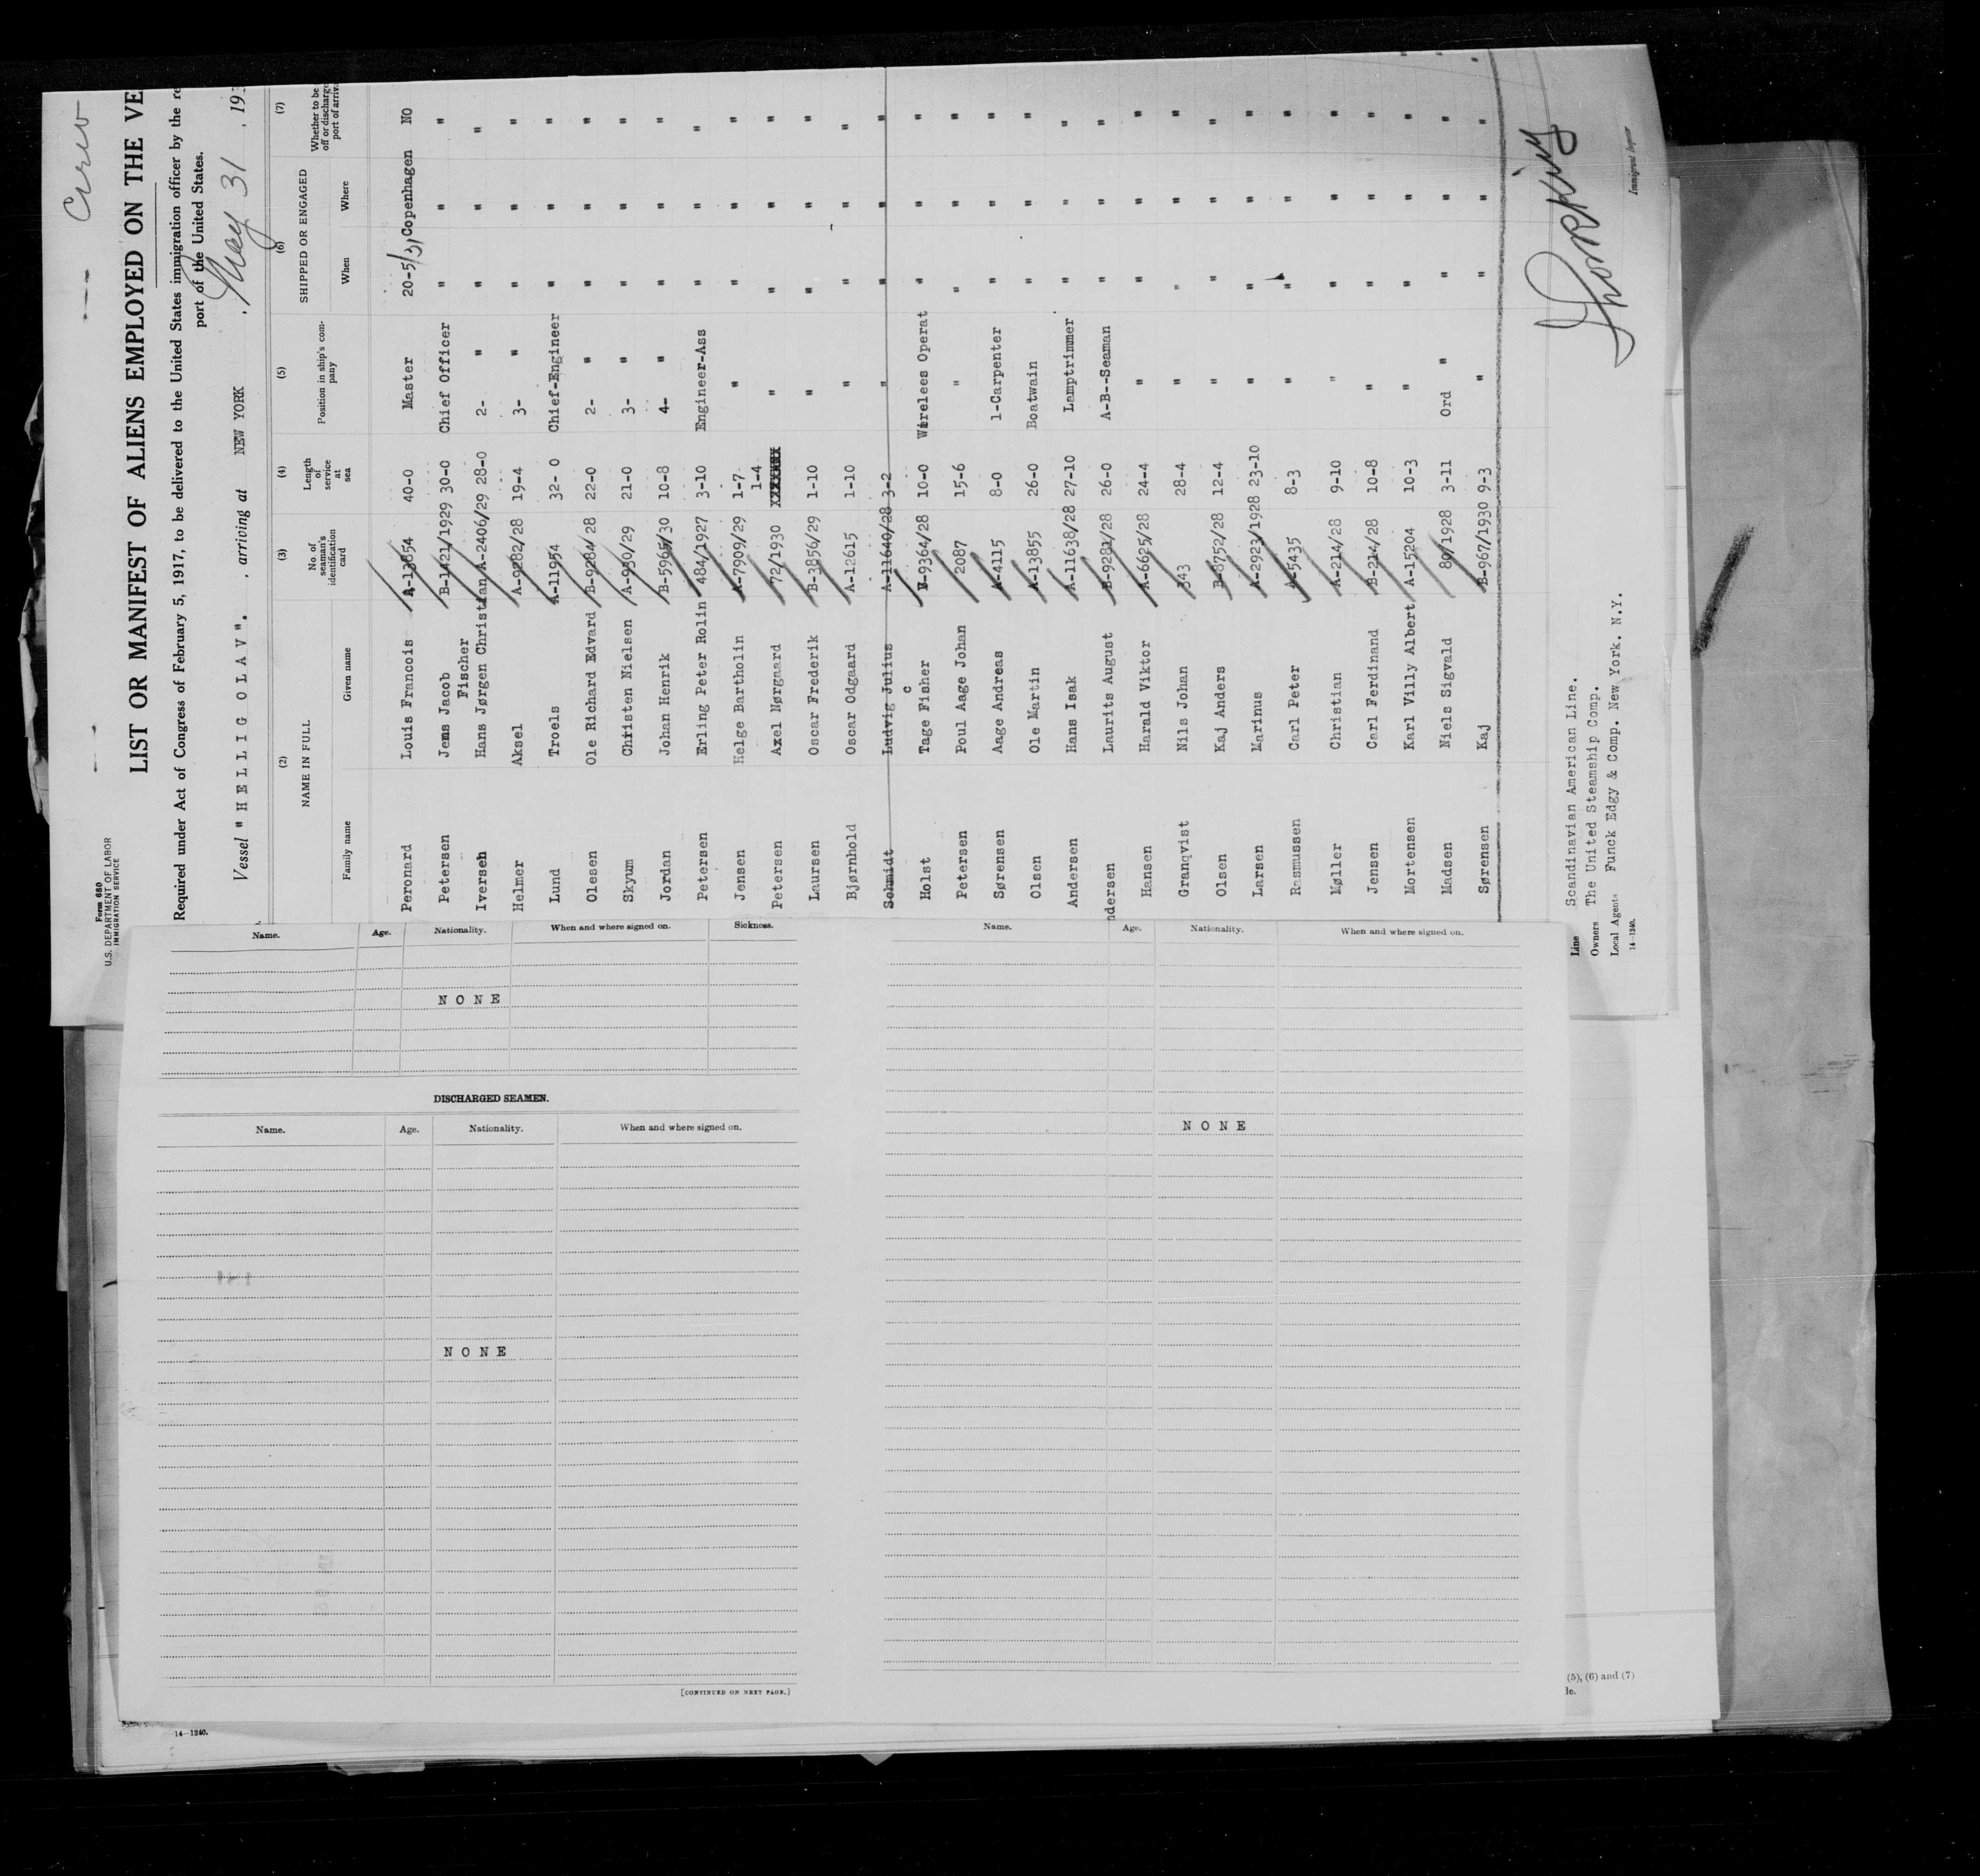 Crew
Form 680
U.S. DEPARTMENT OF LABOR
IMMIGRATION SERVICE
LIST OR MANIFEST OF ALIENS EMPLOYED ON THE VE
Required under Act of Congress of February 5, 1917, to be delivered to the United States immigration officer by the re
port of the United States.
Vessel " HELLIG OLAV". , arriving at NEW YORK , May 31 , 193
(2) (3) (4) (5) (6) (7)
NAME IN FULL No. of seaman's identification card Length of service at sea Position in ship's company SHIPPED OR ENGAGED Whether to be off or discharge port of arriv
Family name Given name When Where
Peronard Louis Francois A-13654 40-0 Master 20-5/31 Copenhagen NO
Petersen Jens Jacob B-1421/1929 30-0 Chief Officer " " "
Fischer
Iversen Hans Jørgen Christian A-2406/29 28-0 2- " " " "
Helmer Aksel A-9282/28 19-4 3- " " " "
Lund Troels A-11954 32- 0 Chief-Engineer " " "
Olesen Ole Richard Edvard B-9284/28 22-0 2- " " " "
Skyum Christen Nielsen A-930/29 21-0 3- " " " "
Jordan Johan Henrik B-5965/30 10-8 4- " " " "
Petersen Erling Peter Rolin 484/1927 3-10 Engineer-Ass " " "
Jensen Helge Bartholin A-7909/29 1-7 " " " "
1-4
Petersen Axel Nørgaard 72/1930 XXXXXXX " " " "
Laursen Oscar Frederik B-3856/29 1-10 " " " "
Bjørnhold Oscar Odgaard A-12615 1-10 " " " "
Schmidt Ludvig Julius A-11640/28 3-2 " " " "
c
Holst Tage Fisher B-9364/28 10-0 Wirelees Operat " " "
Petersen Poul Aage Johan 2087 15-6 " " " "
Sørensen Aage Andreas A-4115 8-0 1-Carpenter " " "
Olsen Ole Martin A-13855 26-0 Boatwain " " "
Andersen Hans Isak A-11638/28 27-10 Lamptrimmer " " "
ndersen Laurits August B-9281/28 26-0 A-B--Seaman " " "
Hansen Harald Viktor A-6625/28 24-4 " " " "
Granqvist Nils Johan 343 28-4 " " " "
Olsen Kaj Anders B-8752/28 12-4 " " " "
Larsen Marinus A-2923/1928 23-10 " " " "
Rasmussen Carl Peter A-5435 8-3 " " " "
Møller Christian A-214/28 9-10 " " " "
Jensen Carl Ferdinand B-214/28 10-8 " " " "
Mortensen Karl Villy Albert A-15204 10-3 " " " "
Madsen Niels Sigvald 80/1928 3-11 Ord " " " "
Sørensen Kaj B-967/1930 9-3 " " " "
Line Scandinavian American Line.
Owners The United Steamship Comp.
Local Agents Funck Edgy & Comp. New York. N.Y.
14-1240.
Immigrant Inspector
Name. Age. Nationality. When and where signed on. Sickness.
NONE
DISCHARGED SEAMEN.
Name. Age. Nationality. When and where signed on.
NONE
[CONTINUED ON NEXT PAGE.]
Name. Age. Nationality. When and where signed on.
NONE
(5), (6) and (7)
le.
14-1240.